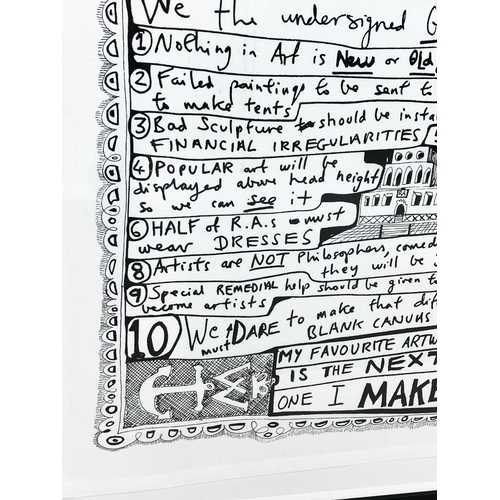 We the undersigned
1 Nothing in Art is New or Old,
2 Failed paintings to be sent to
to make tents
3 Bad Sculpture to should be insta
FINANCIAL IRREGULARITIES
4 POPULAR art will be
displayed above head height
so we can see it
6 HALF of R.A.s must
wear DRESSES
8 Artists are NOT Philosophers, comed
they will be
9 Special REMEDIAL help should be given t
become artists
10 We must DARE to make that dif
BLANK CANVAS
MY FAVOURITE ARTW
IS THE NEXT
ONE I MAKE